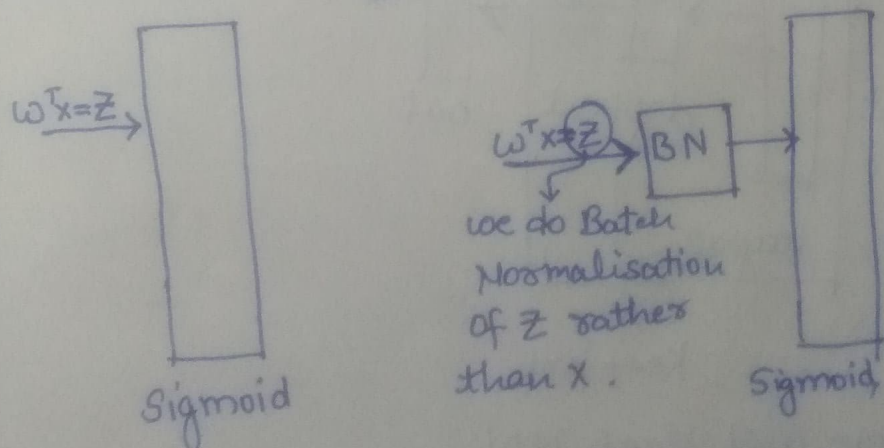 ωᵀx=Z
Sigmoid
ωᵀx=Z
BN
we do Batch
Normalisation
of Z rather
than X.
Sigmoid